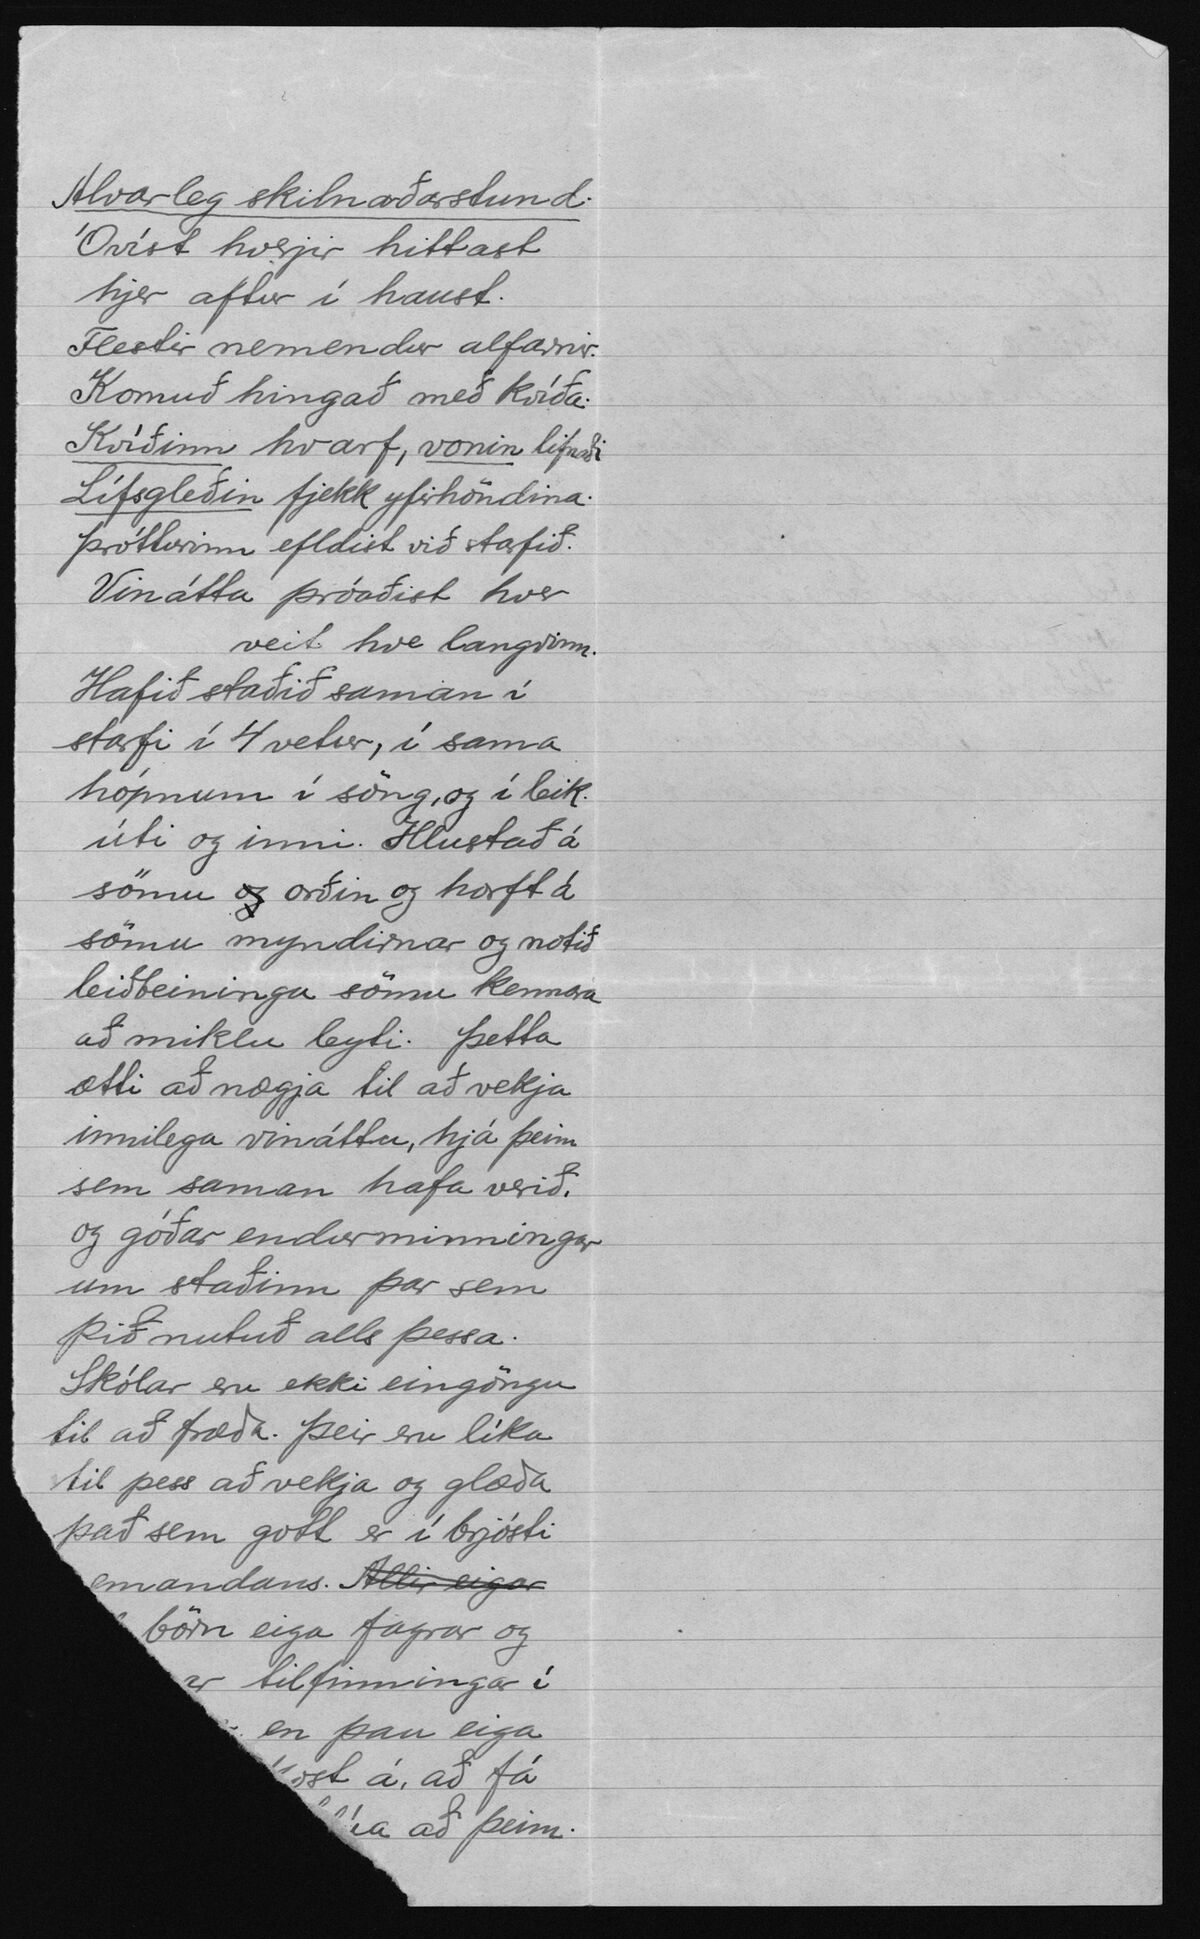 Alvarleg skilnaðarstund.
Óvíst hverjir hittast
hjer aftur í haust.
Flestir nemendur alfarnir.
Komuð hingað með kvíða.
Kvíðinn hvarf, vonin lifnaði
Lífsgleðin fjekk yfirhöndina.
Þrótturinn efldist við starfið.
Vinátta þróaðist hver
veit hve langvinn.
Hafið staðið saman í
starfi í 4 vetur, í sama
hópnum í söng, og í leik.
úti og inni. Hlustað á
sömu og orðin og horft á
sömu myndirnar og notið
leiðbeininga sömu kennara
að miklu leyti. Þetta
ætti að nægja til að vekja
innilega vináttu, hjá þeim
sem saman hafa verið.
og góðar endurminningar
um staðinn þar sem
þið nutuð alls þessa.
Skólar eru ekki eingöngu
til að fræða. Þeir eru líka
til þess að vekja og glæða
það sem gott er í brjósti
emandans. Allir eigar
börn eiga fagrar og
ar tilfinningar í
en þau eiga
kost á, að fá
að þeim.